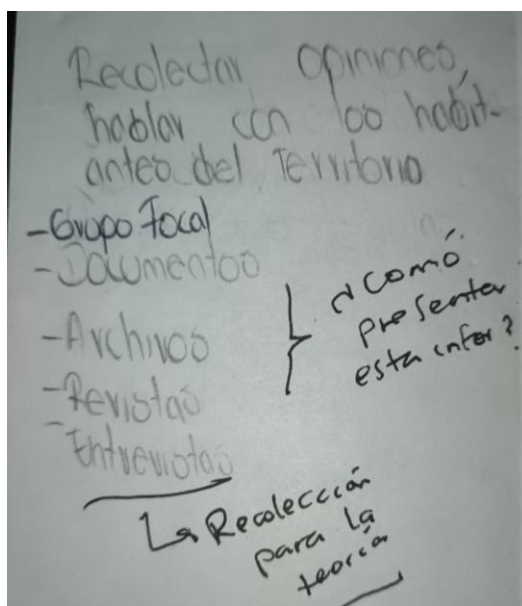 Recolectar opiniones,
hablar con los habit-
antes del Territorio
-Grupo Focal
-Documentos
-Archivos
-Revistas
-Entrevistas
¿Comó
presentar
esta infor?
La Recolección
para la
teoría